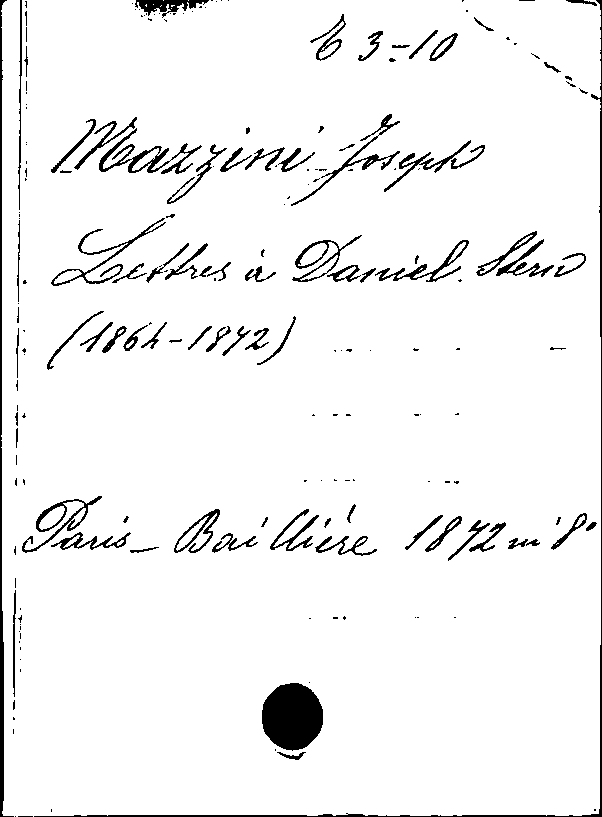 E 3-10
Mazzini Joseph
Lettres à Daniel Stern
(1864-1872)
Paris - Baillière 1872 in 8°